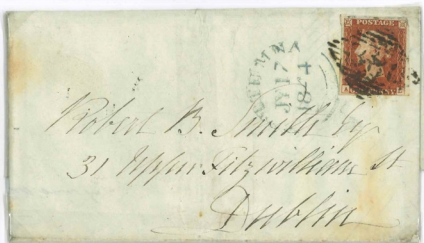 POSTAGE
JY 17
Robert B. Smith Esq
31 Upper Fitzwilliam St
Dublin